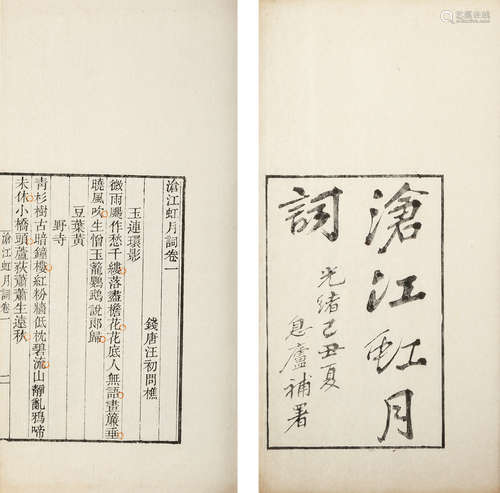 滄江虹月
詞
光緒己丑夏
息廬補署
滄江虹月詞卷一
錢唐汪初問樵
玉連環影
微雨颺作愁千縷落盡櫓花花底人無語畫簾垂
曉風吹生憎玉籠鸚鵡說郎歸
豆葉黃
野寺
青杉樹古暗鐘樓紅粉牆低枕碧流山靜亂鴉啼
未休小橋頭蘆荻蕭蕭生遠秋
滄江虹月詞卷一
一